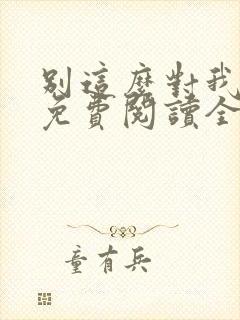 別這麼對我
免費閱讀全
童有兵